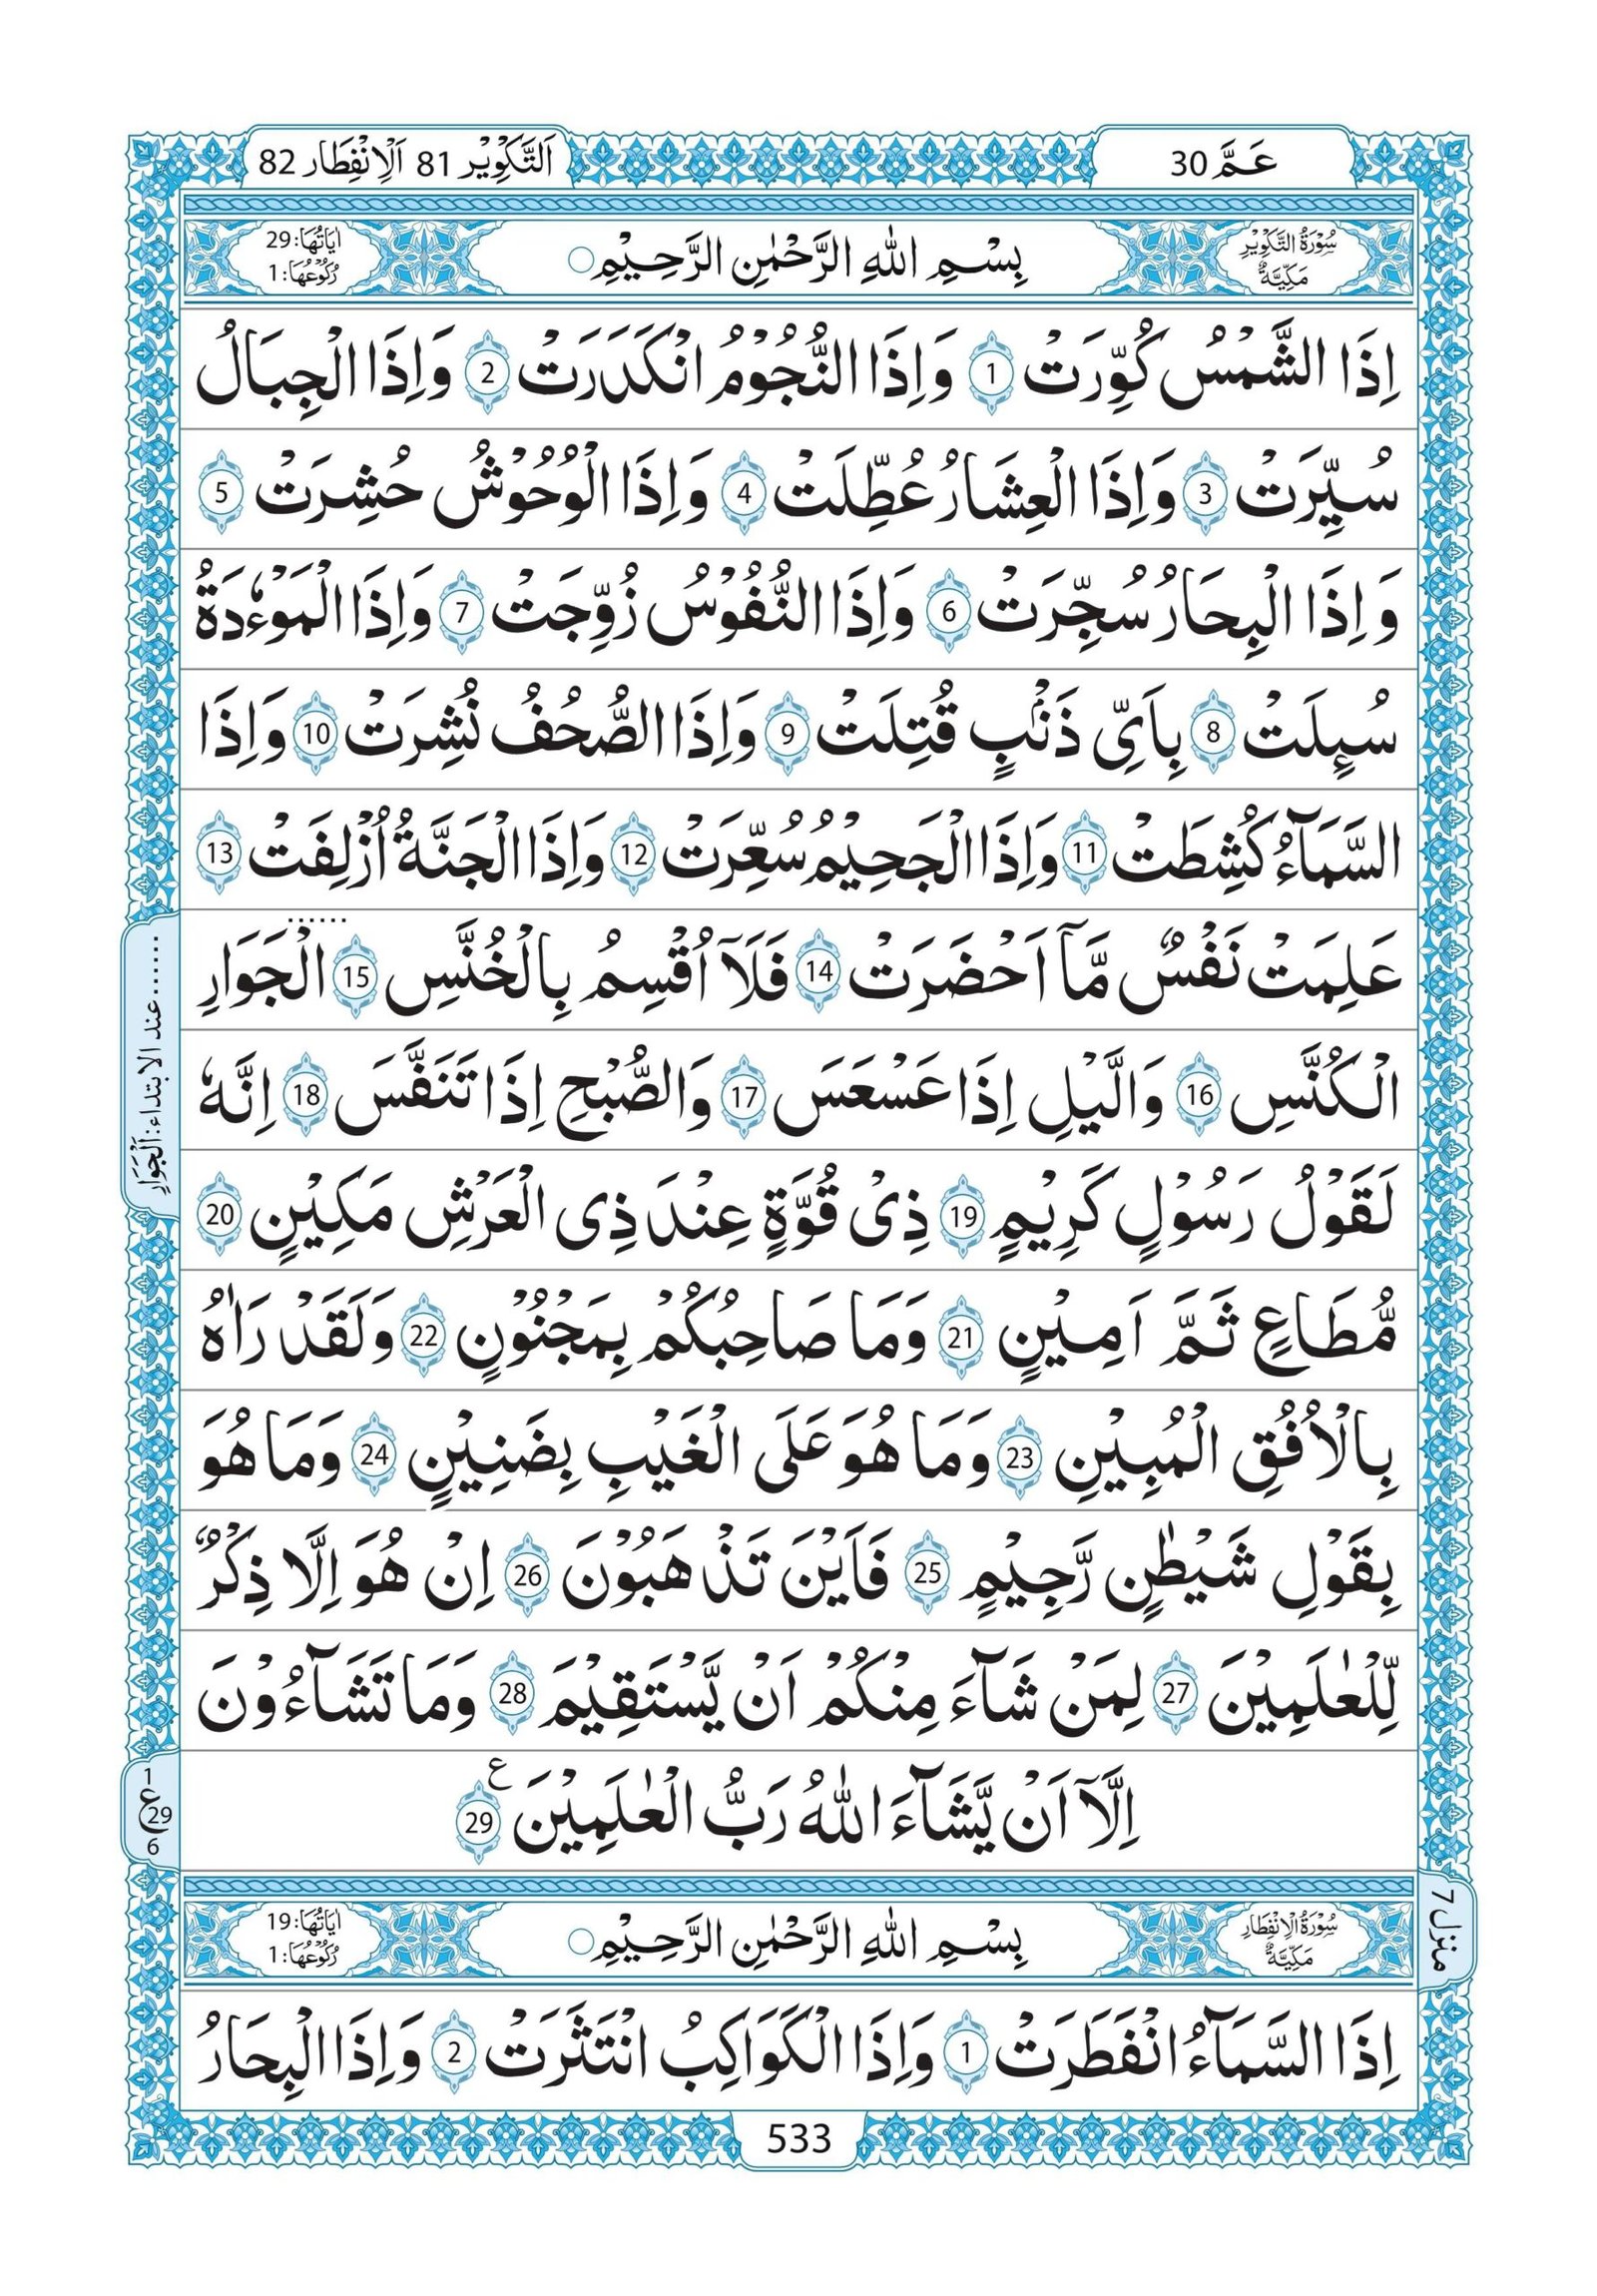 عَمَّ 30
اَلتَّكْوِيْر 81 اَلْاِنْفِطَار 82
سُوْرَةُ التَّكْوِيْرِ
مَكِّيَّةٌ
بِسْمِ اللّٰهِ الرَّحْمٰنِ الرَّحِيْمِ○
اٰيَاتُهَا: 29
رُكُوْعُهَا: 1
اِذَا الشَّمْسُ كُوِّرَتْ 1 وَاِذَا النُّجُوْمُ انْكَدَرَتْ 2 وَاِذَا الْجِبَالُ
سُيِّرَتْ 3 وَاِذَا الْعِشَارُ عُطِّلَتْ 4 وَاِذَا الْوُحُوْشُ حُشِرَتْ 5
وَاِذَا الْبِحَارُ سُجِّرَتْ 6 وَاِذَا النُّفُوْسُ زُوِّجَتْ 7 وَاِذَا الْمَوْءٗدَةُ
سُىِٕلَتْ 8 بِاَىِّ ذَنْۢبٍ قُتِلَتْ 9 وَاِذَا الصُّحُفُ نُشِرَتْ 10 وَاِذَا
السَّمَآءُ كُشِطَتْ 11 وَاِذَا الْجَحِيْمُ سُعِّرَتْ 12 وَاِذَا الْجَنَّةُ اُزْلِفَتْ 13
عَلِمَتْ نَفْسٌ مَّآ اَحْضَرَتْ 14 فَلَآ اُقْسِمُ بِالْخُنَّسِ 15 الْجَوَارِ
الْكُنَّسِ 16 وَالَّيْلِ اِذَا عَسْعَسَ 17 وَالصُّبْحِ اِذَا تَنَفَّسَ 18 اِنَّهٗ
لَقَوْلُ رَسُوْلٍ كَرِيْمٍ 19 ذِىْ قُوَّةٍ عِنْدَ ذِى الْعَرْشِ مَكِيْنٍ 20
مُّطَاعٍ ثَمَّ اَمِيْنٍ 21 وَمَا صَاحِبُكُمْ بِمَجْنُوْنٍ 22 وَلَقَدْ رَاٰهُ
بِالْاُفُقِ الْمُبِيْنِ 23 وَمَا هُوَ عَلَى الْغَيْبِ بِضَنِيْنٍ 24 وَمَا هُوَ
بِقَوْلِ شَيْطٰنٍ رَّجِيْمٍ 25 فَاَيْنَ تَذْهَبُوْنَ 26 اِنْ هُوَ اِلَّا ذِكْرٌ
لِّلْعٰلَمِيْنَ 27 لِمَنْ شَآءَ مِنْكُمْ اَنْ يَّسْتَقِيْمَ 28 وَمَا تَشَآءُوْنَ
اِلَّآ اَنْ يَّشَآءَ اللّٰهُ رَبُّ الْعٰلَمِيْنَ ع 29
...... عند الابتداء: اَلْجَوَارِ
1 ع 29 6
منزل 7
سُوْرَةُ الْاِنْفِطَارِ
مَكِّيَّةٌ
بِسْمِ اللّٰهِ الرَّحْمٰنِ الرَّحِيْمِ○
اٰيَاتُهَا: 19
رُكُوْعُهَا: 1
اِذَا السَّمَآءُ انْفَطَرَتْ 1 وَاِذَا الْكَوَاكِبُ انْتَثَرَتْ 2 وَاِذَا الْبِحَارُ
533